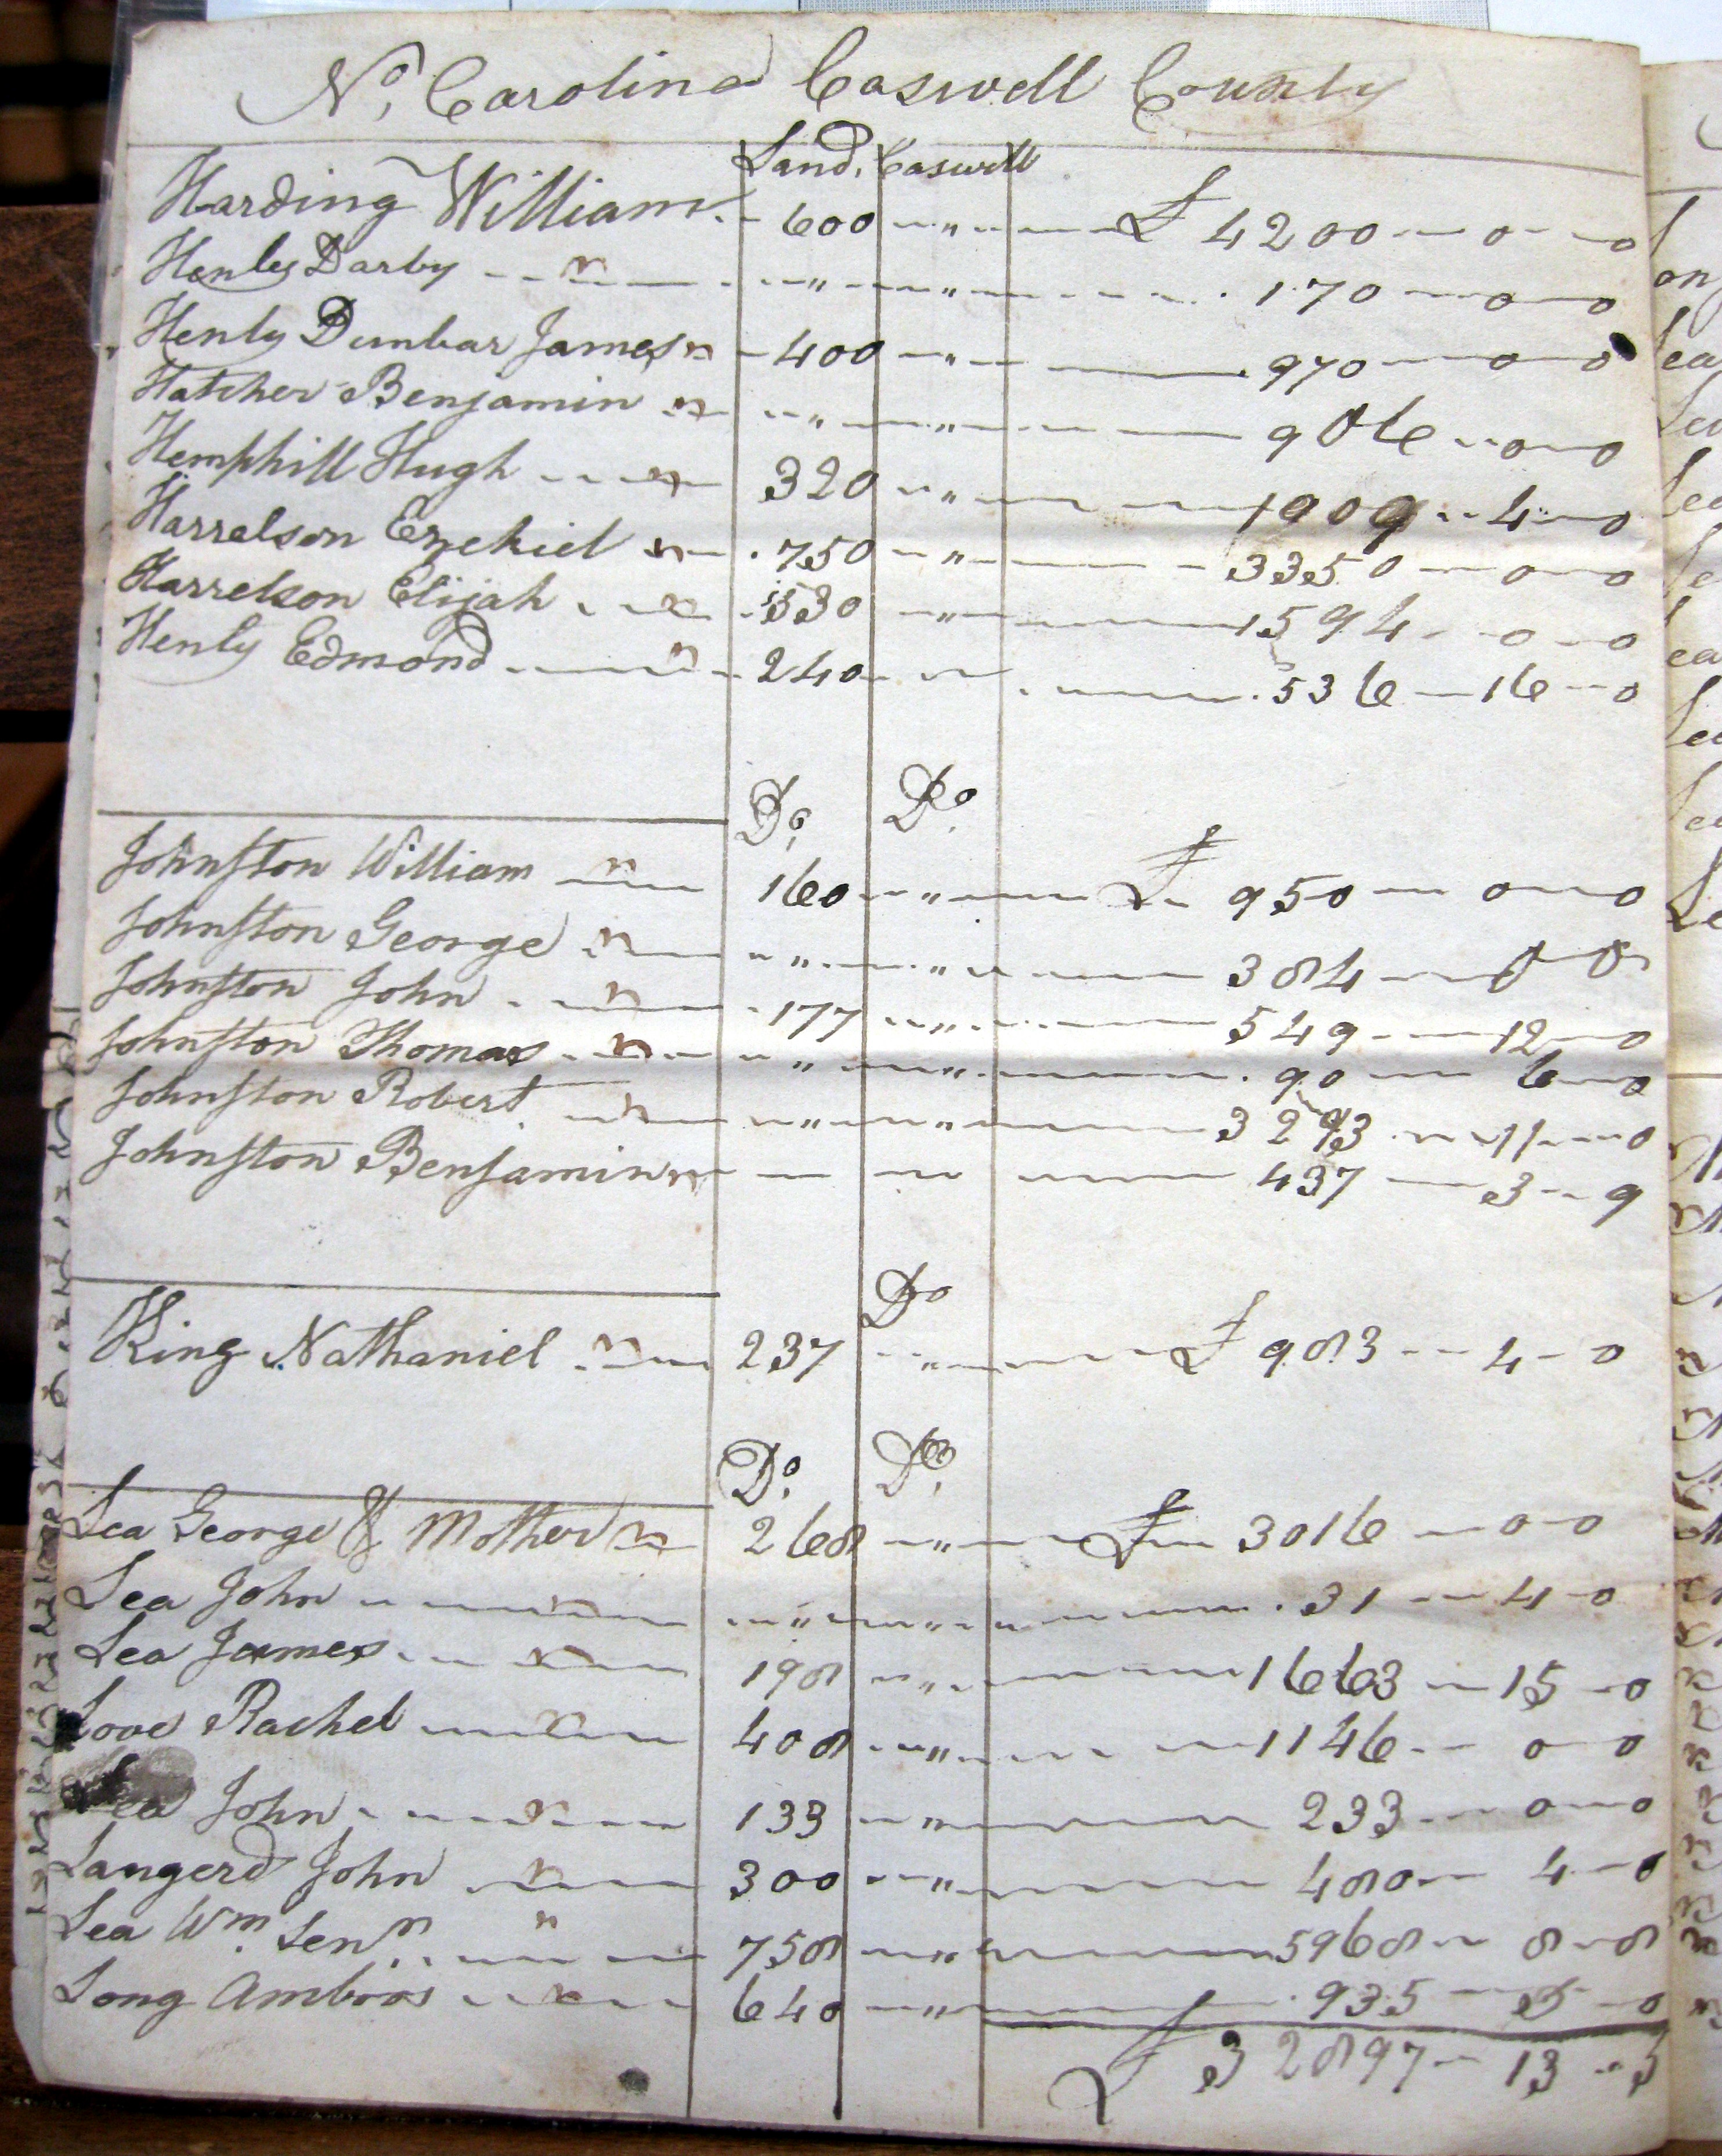 No, Carolina Caswell County
Land, Caswell
Harding William 600 " £ 4200 — 0 — 0
Henley Darby " " 170 — 0 — 0
Henly Dunbar James 400 " 970 — 0 — 0
Hatcher Benjamin " " 906 — 0 — 0
Hemphill Hugh 320 " 1909 — 4 — 0
Harrelson Ezekiel 750 " 3350 — 0 — 0
Harrelson Elijah 530 " 1594 — 0 — 0
Henly Edmond 240 536 — 16 — 0
Do, Do.
Johnston William 160 " £ 950 — 0 — 0
Johnston George " " 384 — 0 0
Johnston John 177 " 549 — 12 — 0
Johnston Thomas " " 90 — 6 — 0
Johnston Robert " " 3293 — 11 — 0
Johnston Benjamin — 437 — 3 — 9
Do
King Nathaniel 237 " £ 983 — 4 — 0
Do. Do.
Lea George & Mother 268 " £ 3016 — 0 — 0
Lea John " " 31 — 4 — 0
Lea James 198 " 1663 — 15 — 0
Love Rachel 408 " 1146 — 0 — 0
Lea John 133 " 233 — 0 — 0
Langerd John 300 " 480 — 4 — 0
Lea Wm. Senr. 758 " 5968 — 8 — 8
Long Ambros 640 " 935 — 5 — 0
£ 32897 — 13 — 5